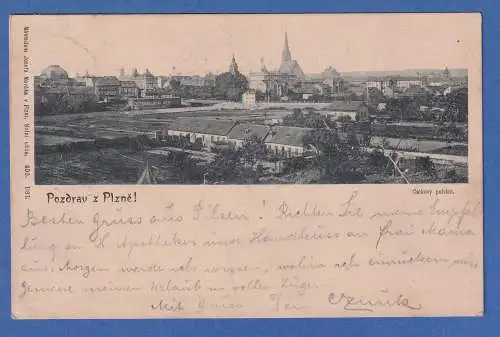 Nákladem Josefa Nováka v Plzni
Pozdrav z Plzně!
Celkový pohled.
Besten Gruss aus Pilsen! Richten Sie meine Empfeh
lung an H. Apotheker und Handkuss an Frau Mama
aus. Morgen werde ich wissen, wohin ich einrücken
meinen Urlaub in vollen Zügen.
Mit Gruss